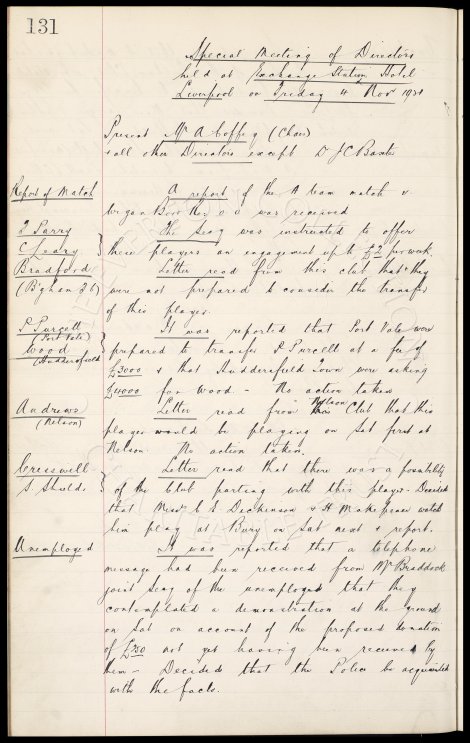 131
Special Meeting of Directors
held at Exchange Station Hotel
Liverpool on Friday 4 Nov 1921
Present Mr A Coffey (Chair)
& all other Directors except Dr J C Baxter
Report of Match
A report of the A team match v
Wigan Boro Res 0 0 was received
T Parry
C Leary
The Secy was instructed to offer
these players an engagement up to £2 per week
Bradford
(B'gham St G)
Letter read from this club that they
were not prepared to consider the transfer
of this player.
P Purcell
(Port Vale)
Wood
(Huddersfield)
It was reported that Port Vale were
prepared to transfer P Purcell at a fee of
£3000 & that Huddersfield Town were asking
£4000 for Wood - No action taken
Andrews
(Nelson)
Letter read from Nelson Club that this
player would be playing on Sat first at
Nelson. No action taken.
Cresswell
S. Shields
Letter read that there was a possibility
of the Club parting with this player. Decided
that Messrs C S Dickinson & H Makepeace watch
him play at Bury on Sat next & report.
Unemployed
It was reported that a telephone
message had been received from Mr Braddock
joint Secy of the unemployed that they
contemplated a demonstration at the ground
on Sat on account of the proposed donation
of £50 not yet having been received by
them - Decided that the Police be acquainted
with the facts.